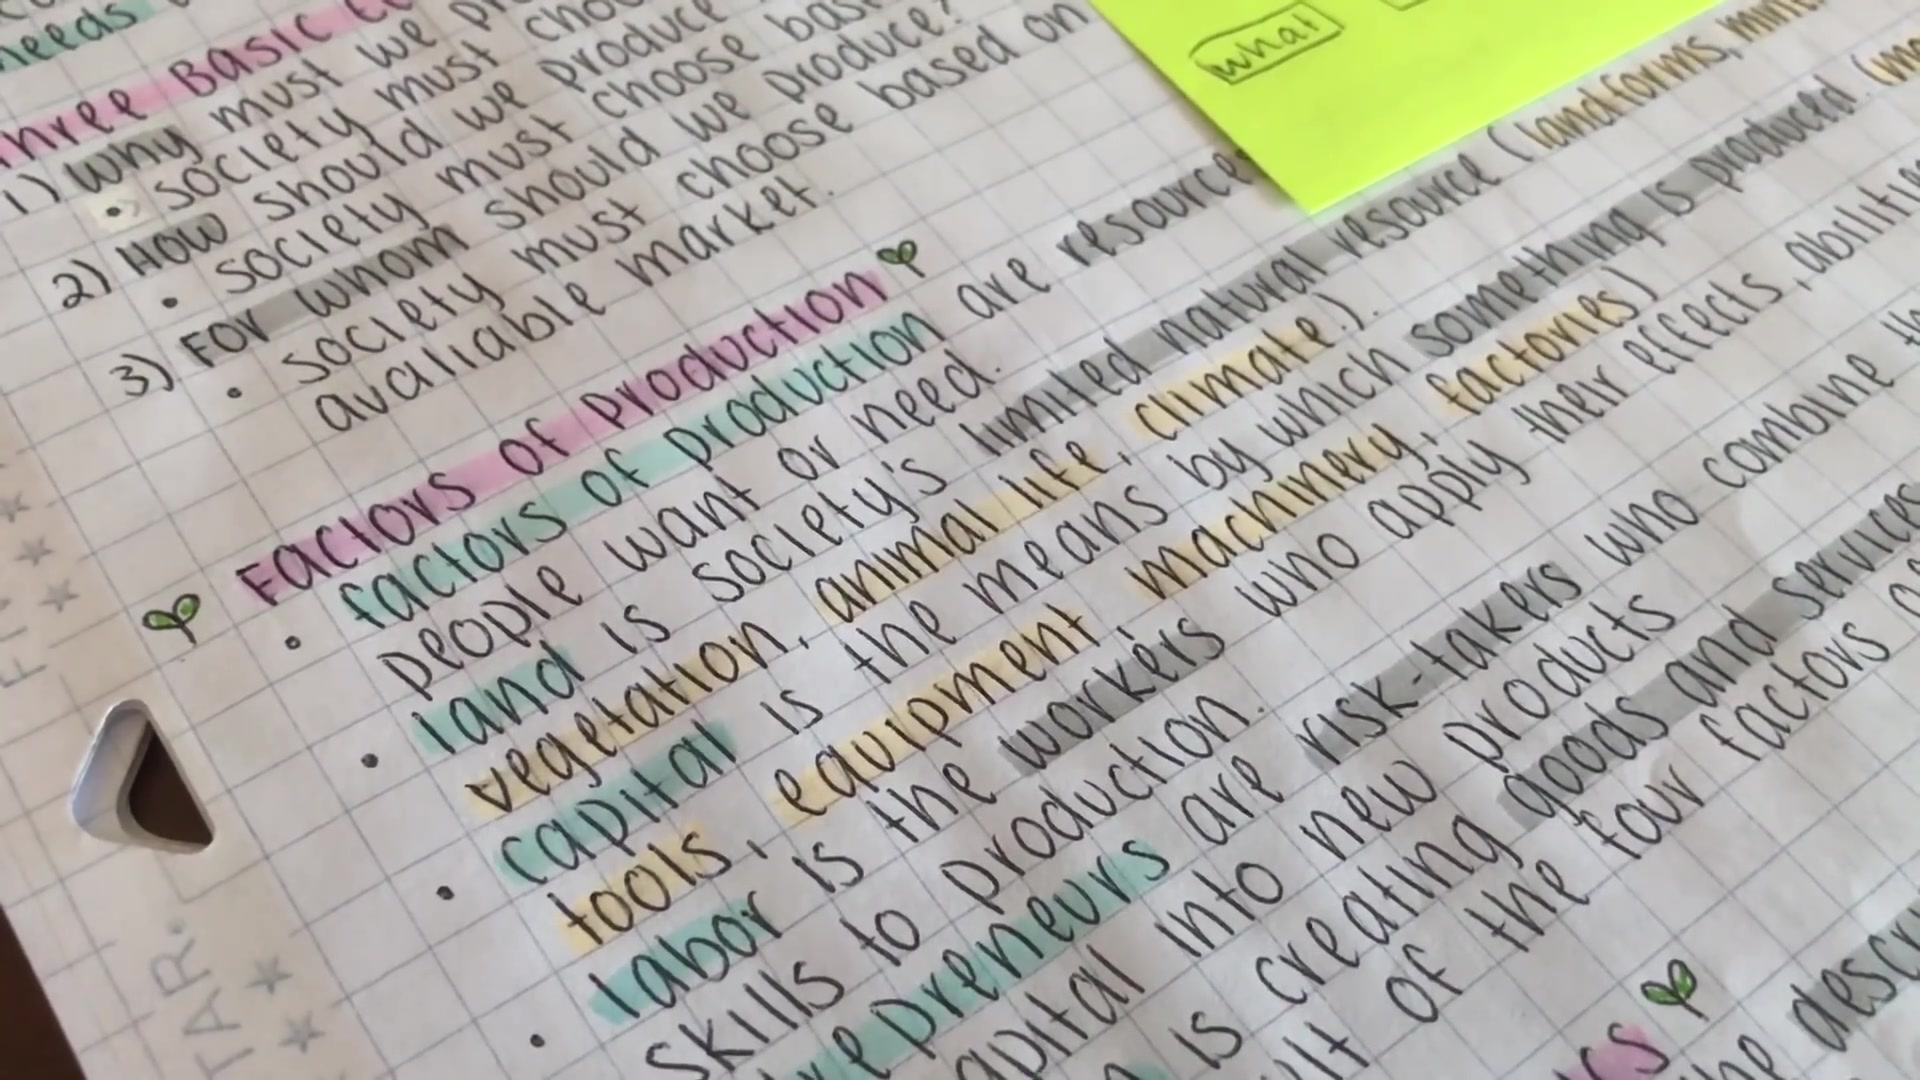 needs
Three Basic
1) Why must we
• society must
2) HOW should we produce
• society must choose
3) FOR whom should we produce?
• society must choose based on
avaliable market.
what
Factors of Production
• factors of production are resource
people want or need.
• land is society's limited natural resource (landforms,
vegetation, animal life, climate).
• capital is the means by which something is produced.
tools, equipment machinery, factories)
• labor is the workers who apply their effects, abilities
skills to production.
preneurs are risk-takers who combine
capital into new products
is creating goods and services
of the four factors
CS
descr
TAR.